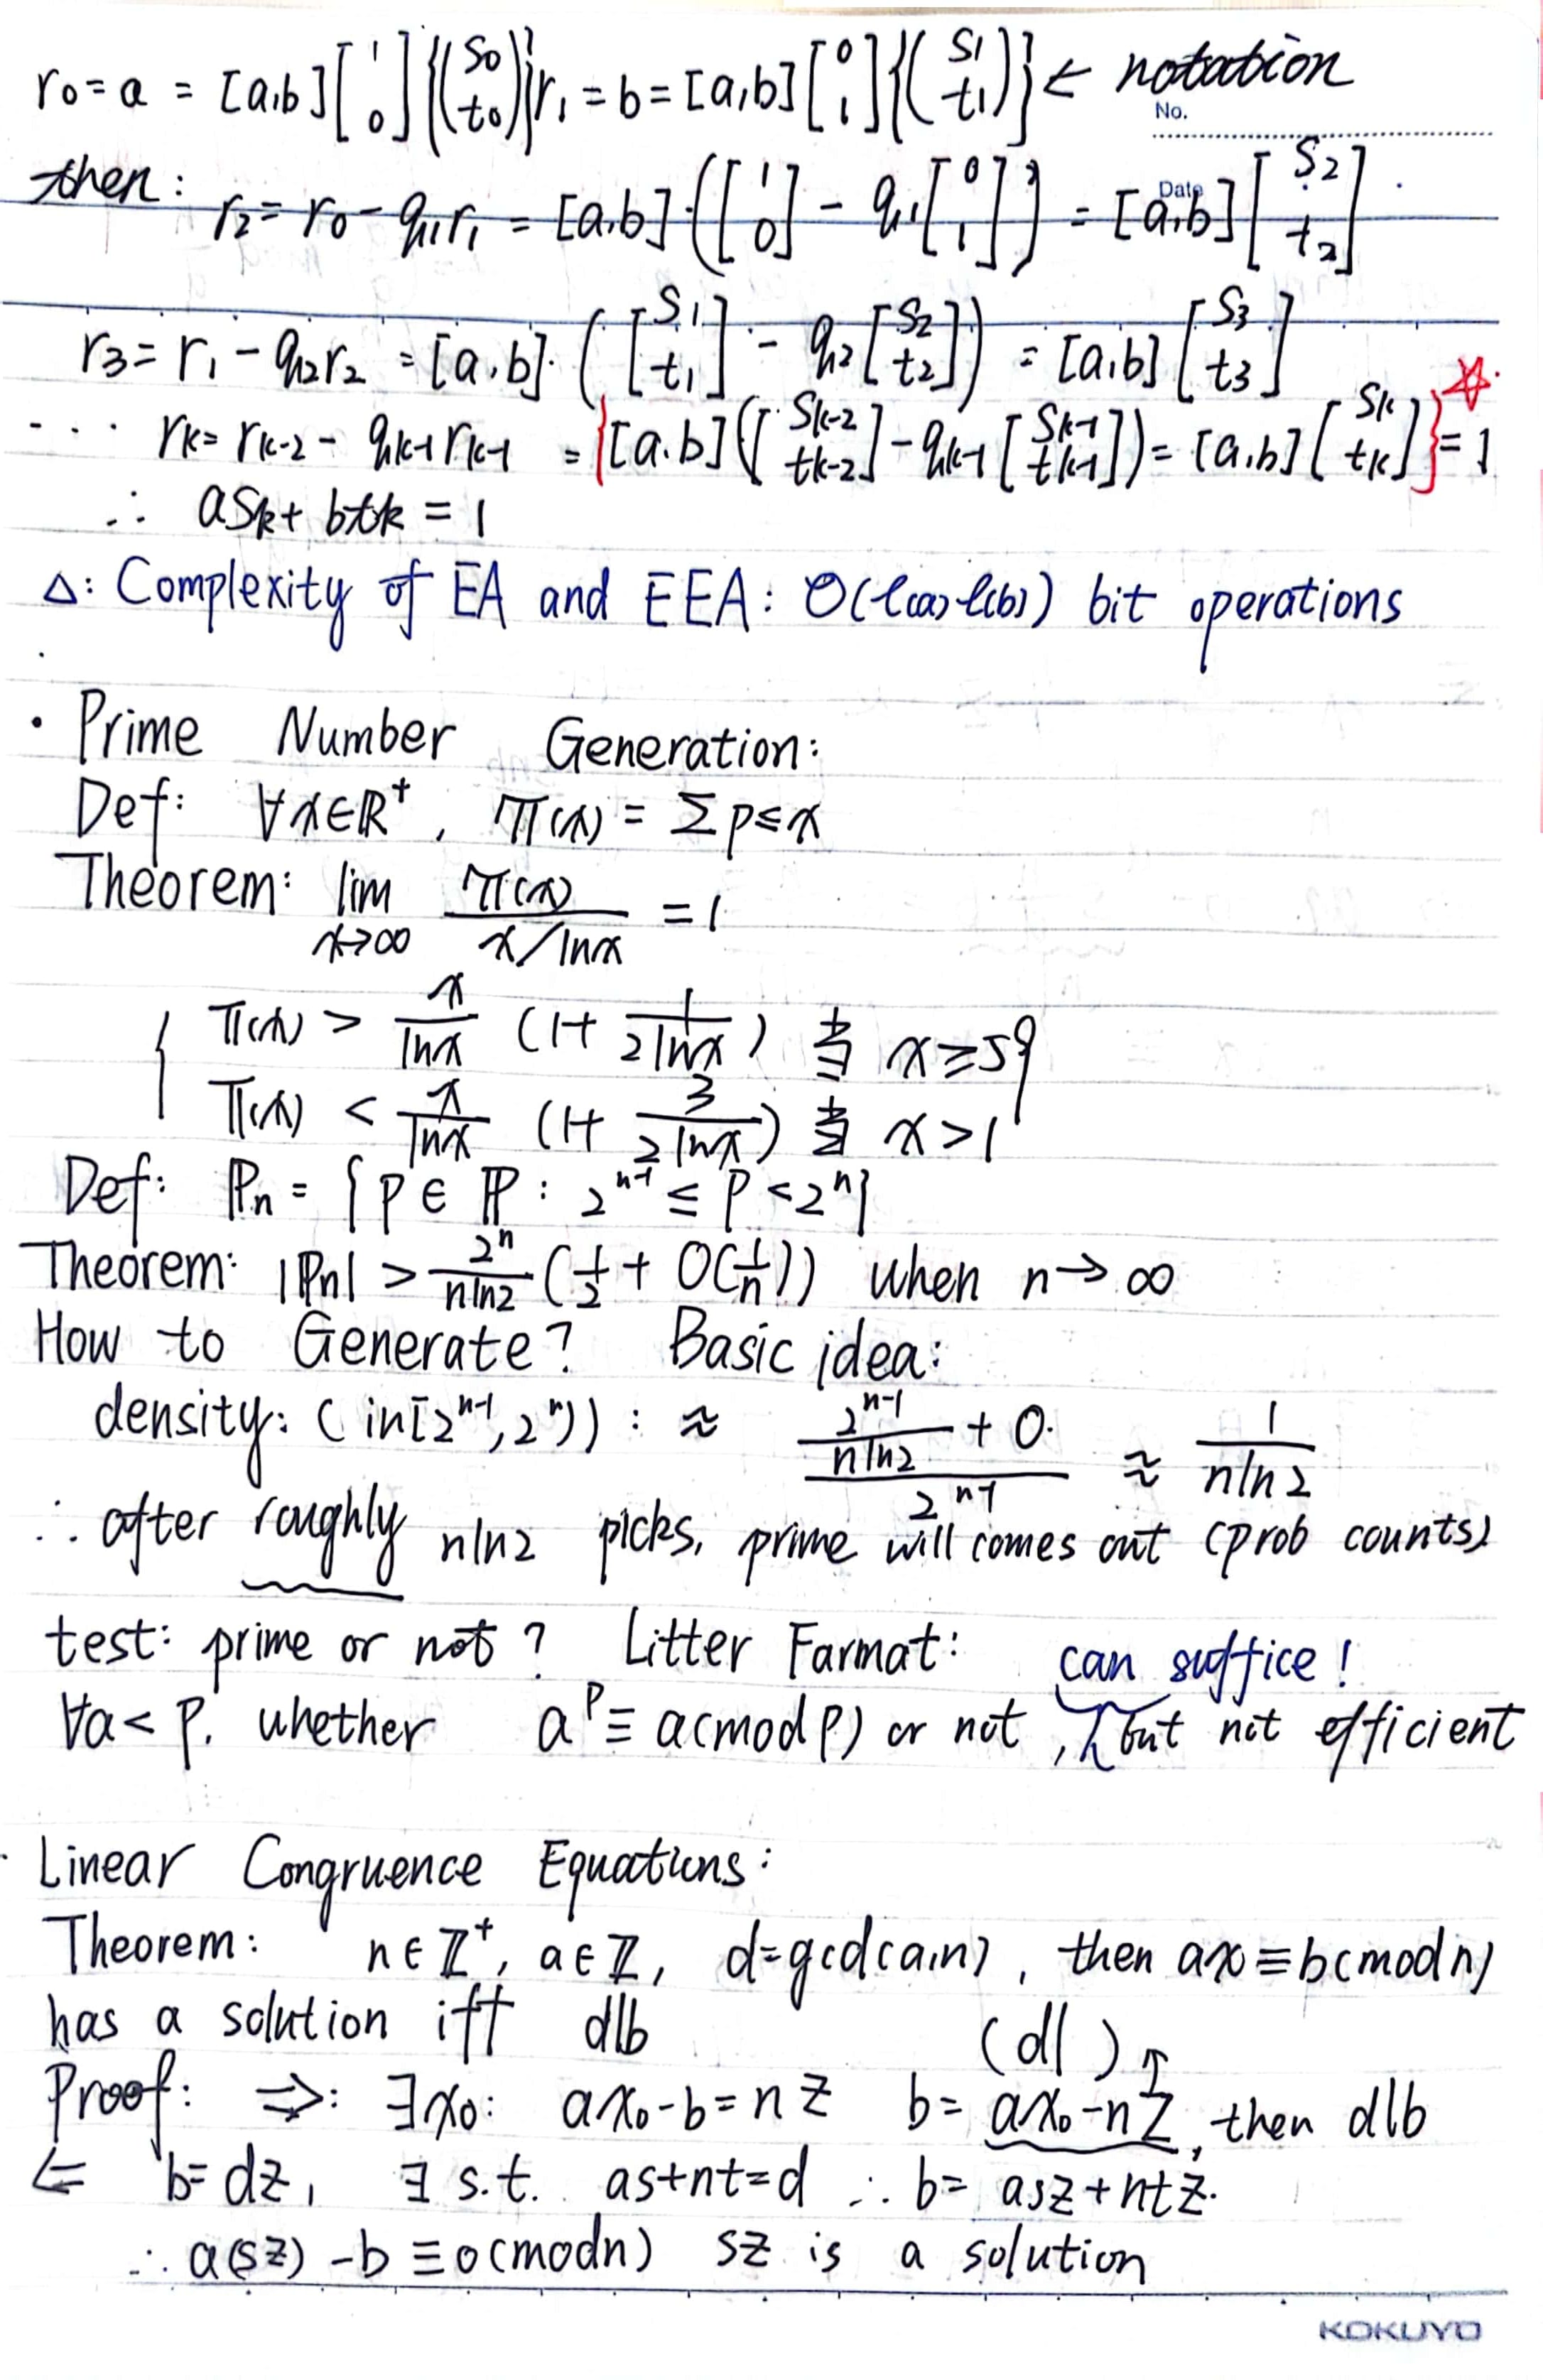 r₀ = a = [a,b][1 0]{(s₀ t₀)} r₁ = b = [a,b][0 1]{(s₁ t₁)} ← notation
No.
then: r₂ = r₀ - q₁r₁ = [a,b]·([1 0] - q₁[0 1]) = [a,b][s₂ t₂]
Date
r₃ = r₁ - q₂r₂ = [a,b]·([s₁ t₁] - q₂[s₂ t₂]) = [a,b][s₃ t₃]
··· rₖ = rₖ₋₂ - qₖ₋₁rₖ₋₁ = {[a,b]([sₖ₋₂ tₖ₋₂] - qₖ₋₁[sₖ₋₁ tₖ₋₁]) = [a,b][sₖ tₖ]} = 1 ☆
∴ asₖ + btₖ = 1
Δ: Complexity of EA and EEA: O(l(a)·l(b)) bit operations
· Prime Number Generation:
Def: ∀x∈ℝ⁺, π(x) = Σ p≤x
Theorem: lim x→∞ π(x) / (x/lnx) = 1
{ π(x) > x/lnx (1 + 1/(2lnx)) 当 x ≥ 59
π(x) < x/lnx (1 + 3/(2lnx)) 当 x > 1
Def: ℙₙ = {p ∈ ℙ : 2ⁿ⁻¹ ≤ p < 2ⁿ}
Theorem: |ℙₙ| > 2ⁿ/(nln2) (1/2 + O(1/n)) when n → ∞
How to Generate? Basic idea:
density: (in[2ⁿ⁻¹, 2ⁿ)) : ≈ (2ⁿ⁻¹/(nln2) + 0·)/2ⁿ⁻¹ ≈ 1/(nln2)
∴ after roughly nln2 picks, prime will comes out (prob counts)
test: prime or not? Litter Farmat: can suffice!
∀a < p, whether aᵖ ≡ a(mod p) or not, but not efficient
· Linear Congruence Equations:
Theorem: n∈ℤ⁺, a∈ℤ, d=gcd(a,n), then ax ≡ b(mod n)
has a solution iff d|b (d| )↑
Proof: ⇒: ∃x₀: ax₀-b = nz b = ax₀-nz, then d|b
⇐ b=dz, ∃ s.t. as+nt=d ∴ b= asz+ntz.
∴ a(sz) -b ≡ 0(mod n) sz is a solution
KOKUYO